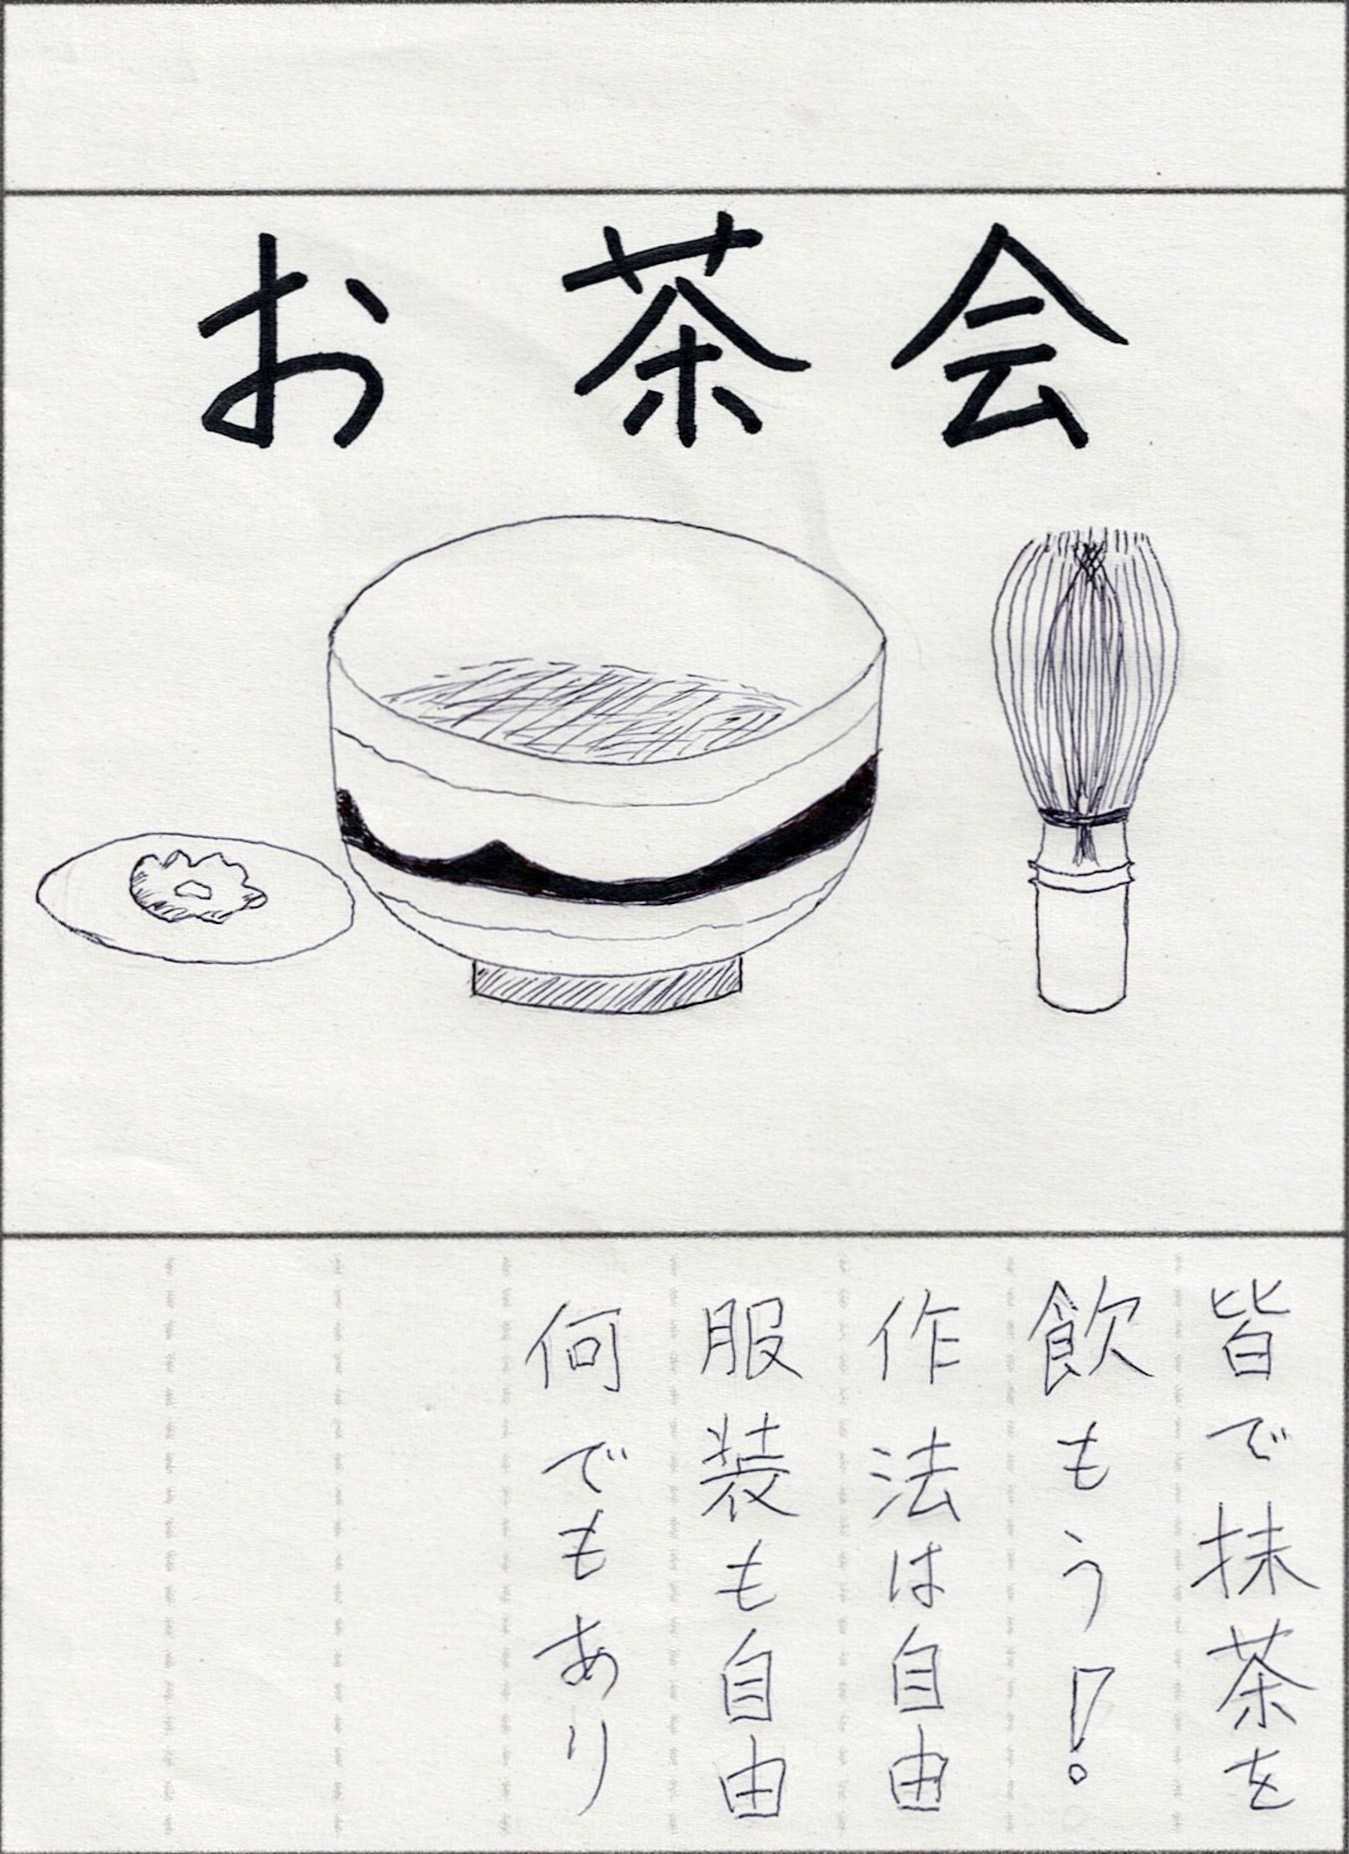 お茶会
皆で抹茶を
飲もう!
作法は自由
服装も自由
何でもあり